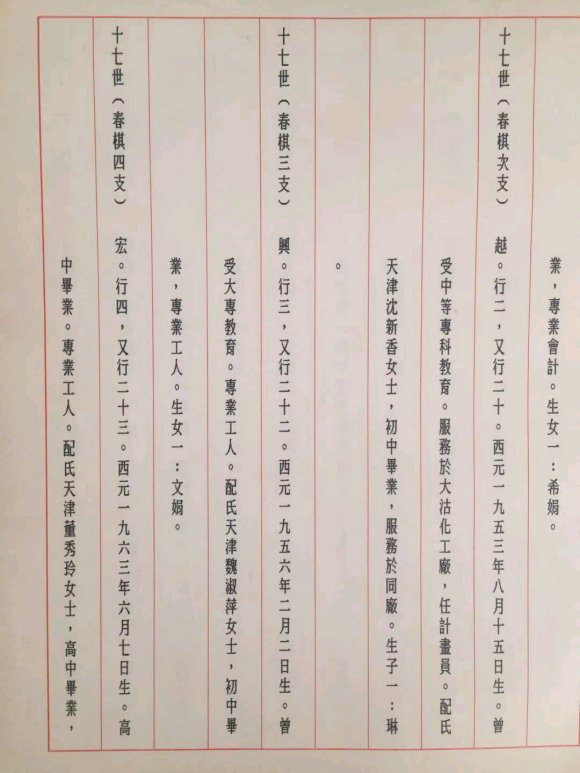 業，專業會計。生女一：希娟。
十七世（春棋次支）　越。行二，又行二十。西元一九五三年八月十五日生。曾
受中等專科教育。服務於大沽化工廠，任計畫員。配氏
天津沈新香女士，初中畢業，服務於同廠。生子一：琳
。
十七世（春棋三支）　興。行三，又行二十二。西元一九五六年二月二日生。曾
受大專教育。專業工人。配氏天津魏淑萍女士，初中畢
業，專業工人。生女一：文娟。
十七世（春棋四支）　宏。行四，又行二十三。西元一九六三年六月七日生。高
中畢業。專業工人。配氏天津董秀玲女士，高中畢業，